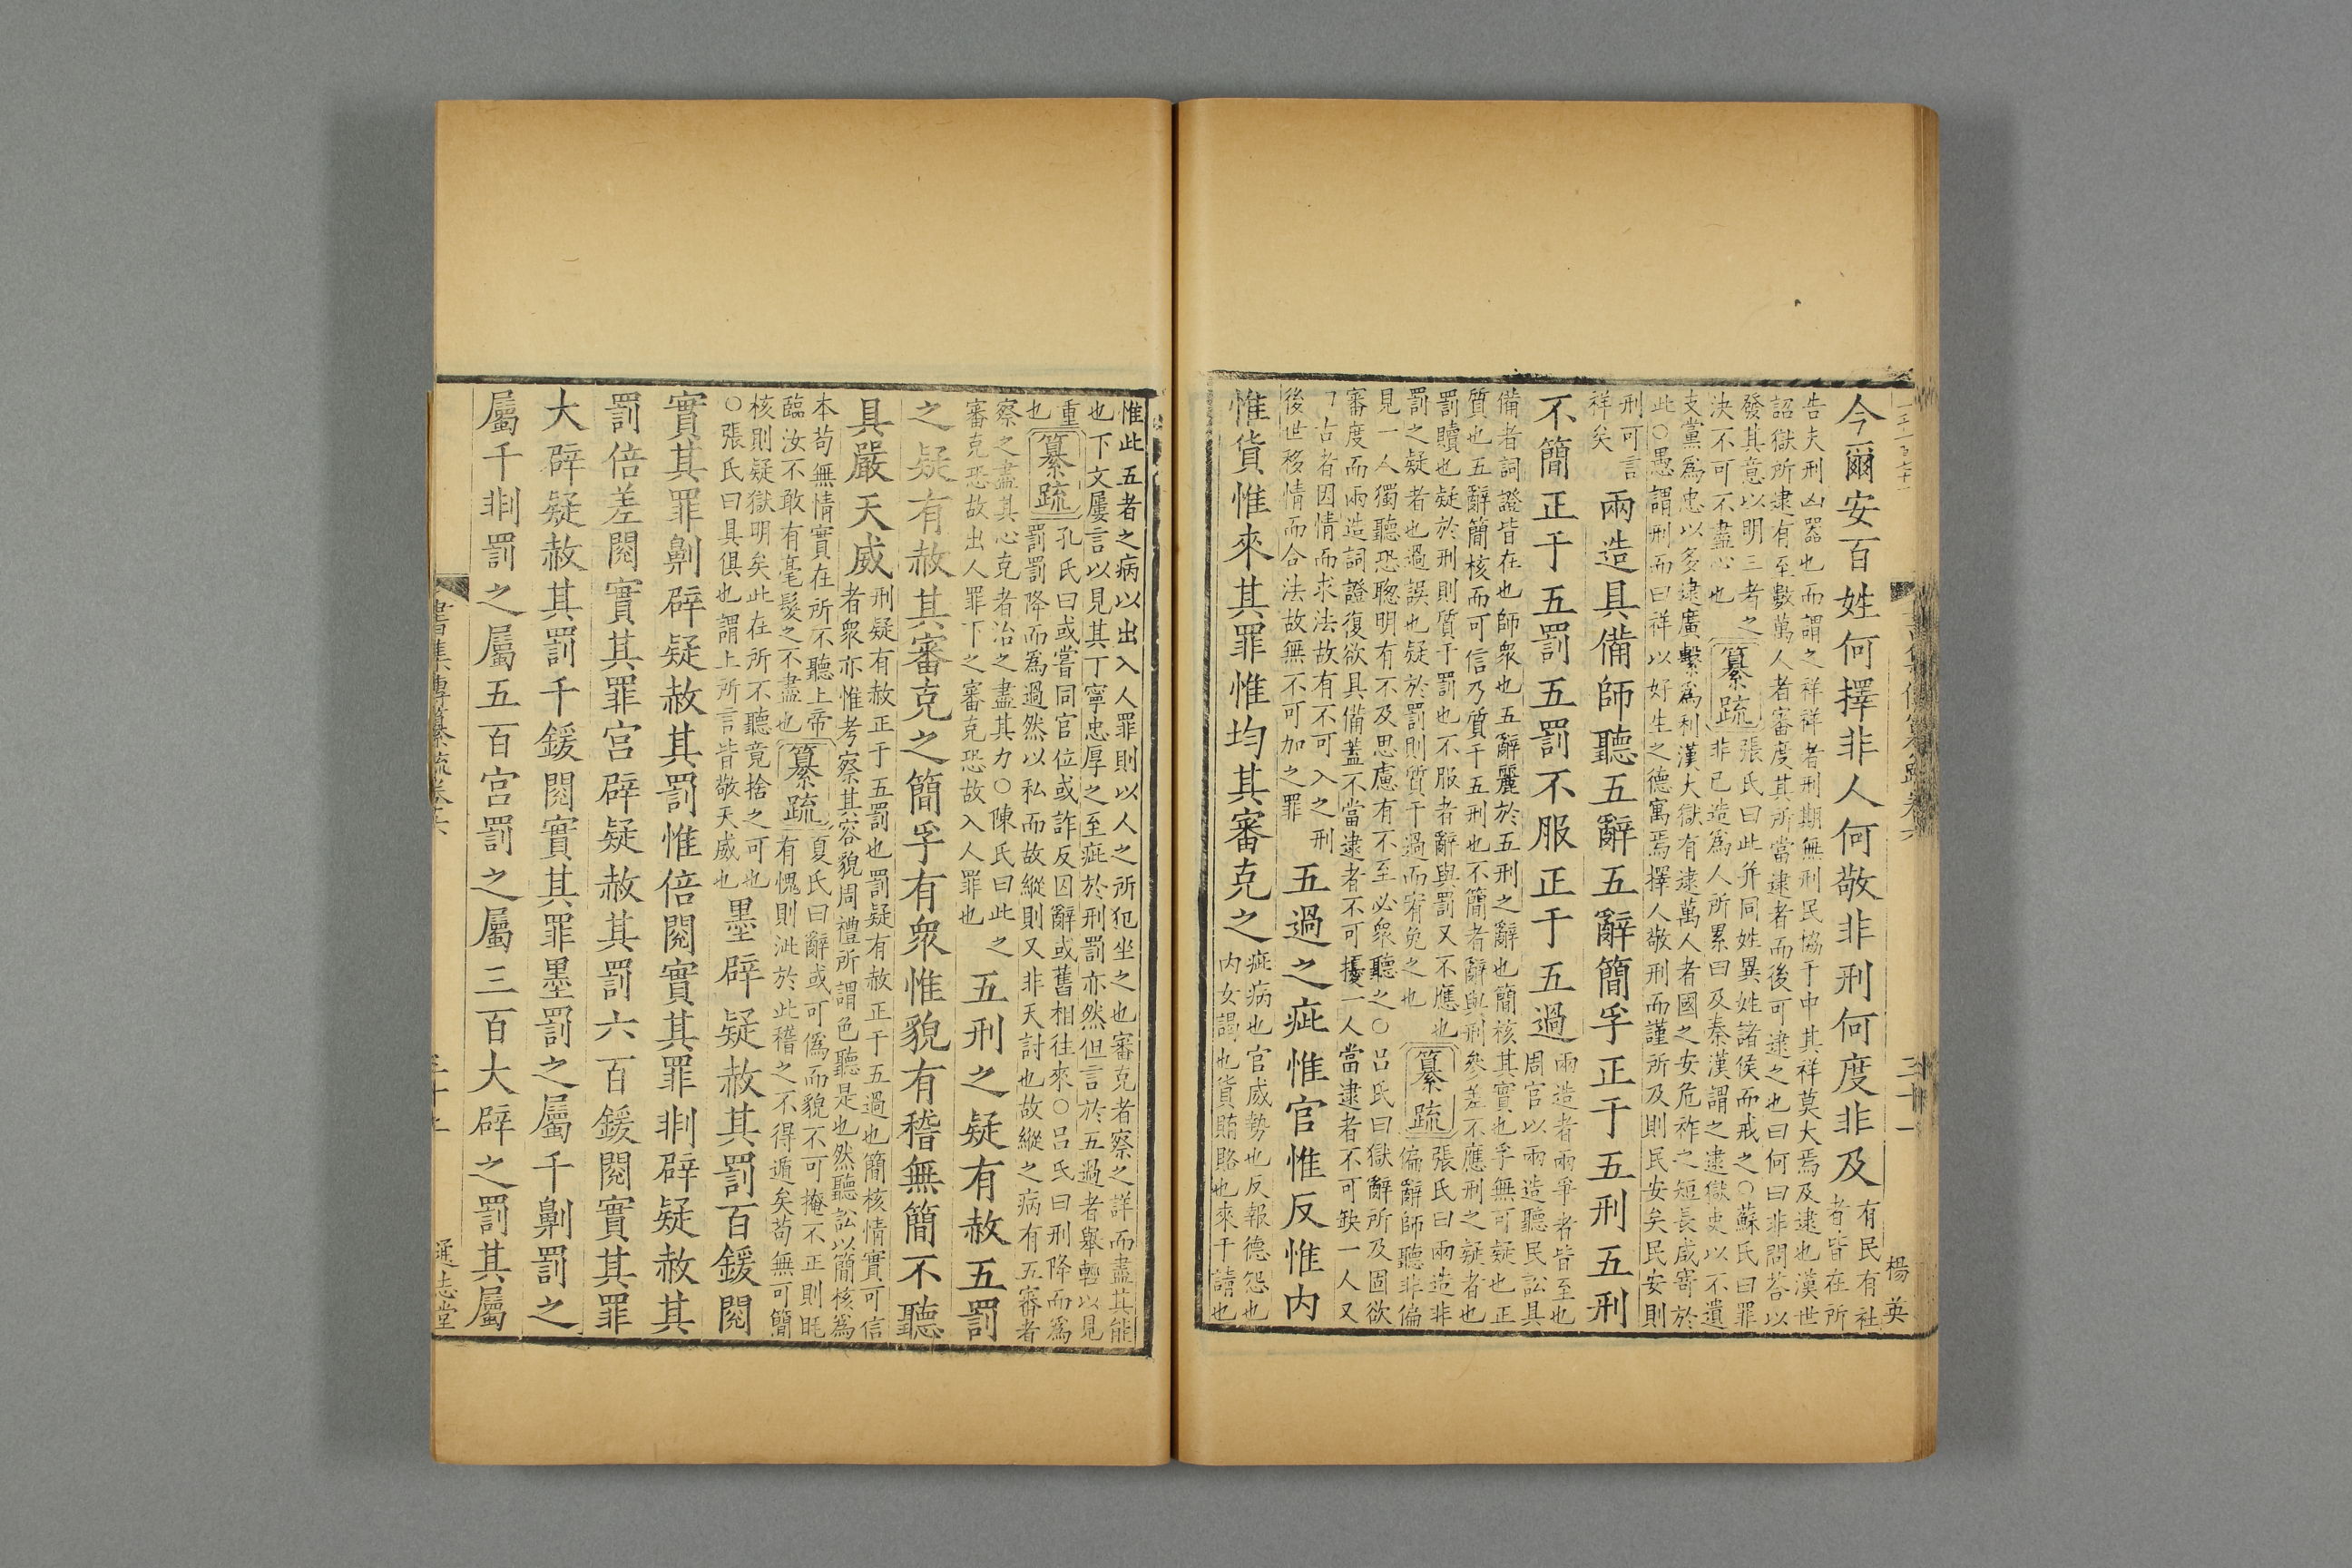 今爾安百姓何擇非人何敬非刑何度非及有民有社
者皆在所
告夫刑凶器也而謂之祥祥者刑期無刑民協于中其祥莫大焉及逮也漢世
詔獄所逮有至數萬人者審度其所當逮者而後可逮之也曰何曰非問荅以
發其意以明三者之
決不可不盡心也
纂疏
張氏曰此并同姓異姓諸侯而戒之○蘇氏曰罪
非已造爲人所累曰及秦漢謂之逮獄吏以不遺
支黨爲忠以多逮廣繫爲利漢大獄有逮萬人者國之安危祚之短長咸寄於
此○愚謂刑而曰祥以好生之德寓焉擇人敬刑而謹所及則民安矣民安則
刑可言
祥矣
兩造具備師聽五辭五辭簡孚正于五刑五刑
不簡正于五罰五罰不服正于五過
兩造者兩爭者皆至也
周官以兩造聽民訟具
備者詞證皆在也師衆也五辭麗於五刑之辭也簡核其實也孚無可疑也正
質也五辭簡核而可信乃質于五刑也不簡者辭與刑參差不應刑之疑者也
罰贖也疑於刑則質于罰也不服者辭與罰又不應也
罰之疑者也過誤也疑於罰則質于過而宥免之也
纂疏
張氏曰兩造非
偏辭師聽非偏
見一人獨聽恐聰明有不及思慮有不至必衆聽之○吕氏曰獄辭所及固欲
審度而兩造詞證復欲具備蓋不當逮者不可擾一人當逮者不可缺一人又
曰古者因情而求法故有不可入之刑
後世移情而合法故無不可加之罪
五過之疵惟官惟反惟内
惟貨惟來其罪惟均其審克之
疵病也官威勢也反報德怨也
内女謁也貨賄賂也來干請也
楊英
惟此五者之病以出入人罪則以人之所犯坐之也審克者察之詳而盡其能
也下文屢言以見其丁寧忠厚之至疵於刑罰亦然但言於五過者舉輕以見
重
也
纂疏
孔氏曰或嘗同官位或詐反囚辭或舊相往來○吕氏曰刑降而爲
罰罰降而爲過然以私而故縱則又非天討也故縱之病有五審者
察之盡其心克者治之盡其力○陳氏曰此之
審克恐故出人罪下之審克恐故入人罪也
五刑之疑有赦五罰
之疑有赦其審克之簡孚有衆惟貌有稽無簡不聽
具嚴天威
刑疑有赦正于五罰也罰疑有赦正于五過也簡核情實可信
者衆亦惟考察其容貌周禮所謂色聽是也然聽訟以簡核爲
本苟無情實在所不聽上帝
臨汝不敢有毫髮之不盡也
纂疏
夏氏曰辭或可僞而貌不可掩不正則眊
有愧則泚於此稽之不得遁矣苟無可簡
核則疑獄明矣此在所不聽竟捨之可也
○張氏曰具俱也謂上所言皆敬天威也
墨辟疑赦其罰百鍰閱
實其罪劓辟疑赦其罰惟倍閱實其罪剕辟疑赦其
罰倍差閱實其罪宫辟疑赦其罰六百鍰閱實其罪
大辟疑赦其罰千鍰閱實其罪墨罰之屬千劓罰之
屬千剕罰之屬五百宫罰之屬三百大辟之罰其屬
書集傳纂疏卷六
通志堂